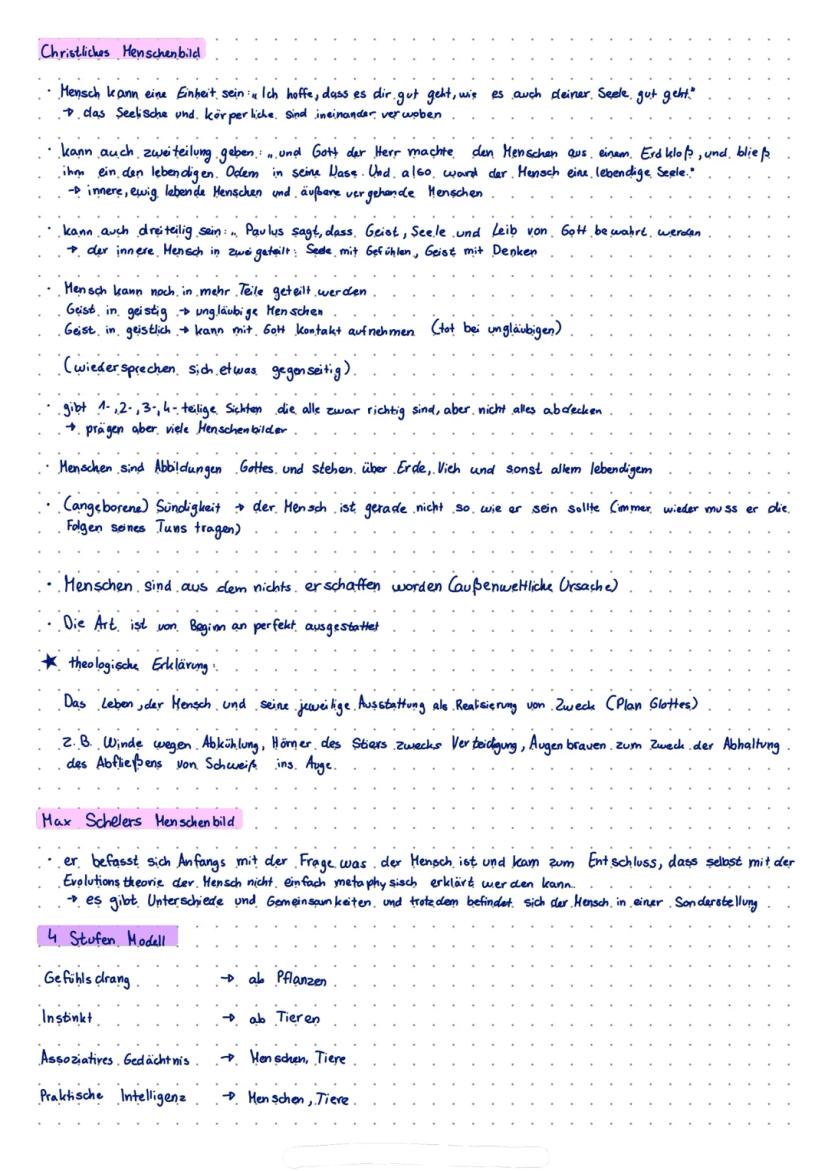 Christliches Menschenbild
· Mensch kann eine Einheit sein: „Ich hoffe, dass es dir gut geht, wie es auch deiner Seele gut geht."
→ das Seelische und körperliche sind ineinander verwoben
· kann auch zweiteilung geben: „und Gott der Herr machte den Menschen aus einem Erdkloß, und bließ
ihm ein den lebendigen Odem in seine Nase. Und also ward der Mensch eine lebendige Seele."
→ innere, ewig lebende Menschen und äußere vergehande Menschen
· kann auch dreiteilig sein: „ Paulus sagt, dass Geist, Seele und Leib von Gott bewahrt werden
→ der innere Mensch in zwei geteilt: Seele mit Gefühlen, Geist mit Denken
· Mensch kann noch in mehr Teile geteilt werden
Geist in geistig → ungläubige Menschen
Geist in geistlich → kann mit Gott Kontakt aufnehmen (tot bei ungläubigen)
(wiedersprechen sich etwas gegenseitig)
· gibt 1-, 2-, 3-, 4- teilige Sichten die alle zwar richtig sind, aber nicht alles abdecken
→ prägen aber viele Menschenbilder
· Menschen sind Abbildungen Gottes und stehen über Erde, Vieh und sonst allem lebendigem
· (angeborene) Sündigkeit → der Mensch ist gerade nicht so wie er sein sollte (immer wieder muss er die
Folgen seines Tuns tragen)
· Menschen sind aus dem nichts erschaffen worden (außenweltliche Ursache)
· Die Art ist von Beginn an perfekt ausgestattet
★ theologische Erklärung:
Das Leben, der Mensch und seine jeweilige Ausstattung als Realisierung von Zweck (Plan Glottes)
z.B. Winde wegen Abkühlung, Hörner des Stiers zwecks Verteidgung, Augenbrauen zum Zweck der Abhaltung
des Abfließens von Schweiß ins Auge.
Max Schelers Menschenbild
· er befasst sich Anfangs mit der Frage was der Mensch ist und kam zum Entschluss, dass selbst mit der
Evolutionstheorie der Mensch nicht einfach metaphysisch erklärt werden kann.
→ es gibt Unterschiede und Gemeinsamkeiten und trotzdem befindet sich der Mensch in einer Sonderstellung
4 Stufen Modell
Gefühlsdrang → ab Pflanzen
Instinkt → ab Tieren
Assoziatives Gedächtnis → Menschen, Tiere
Praktische Intelligenz → Menschen, Tiere